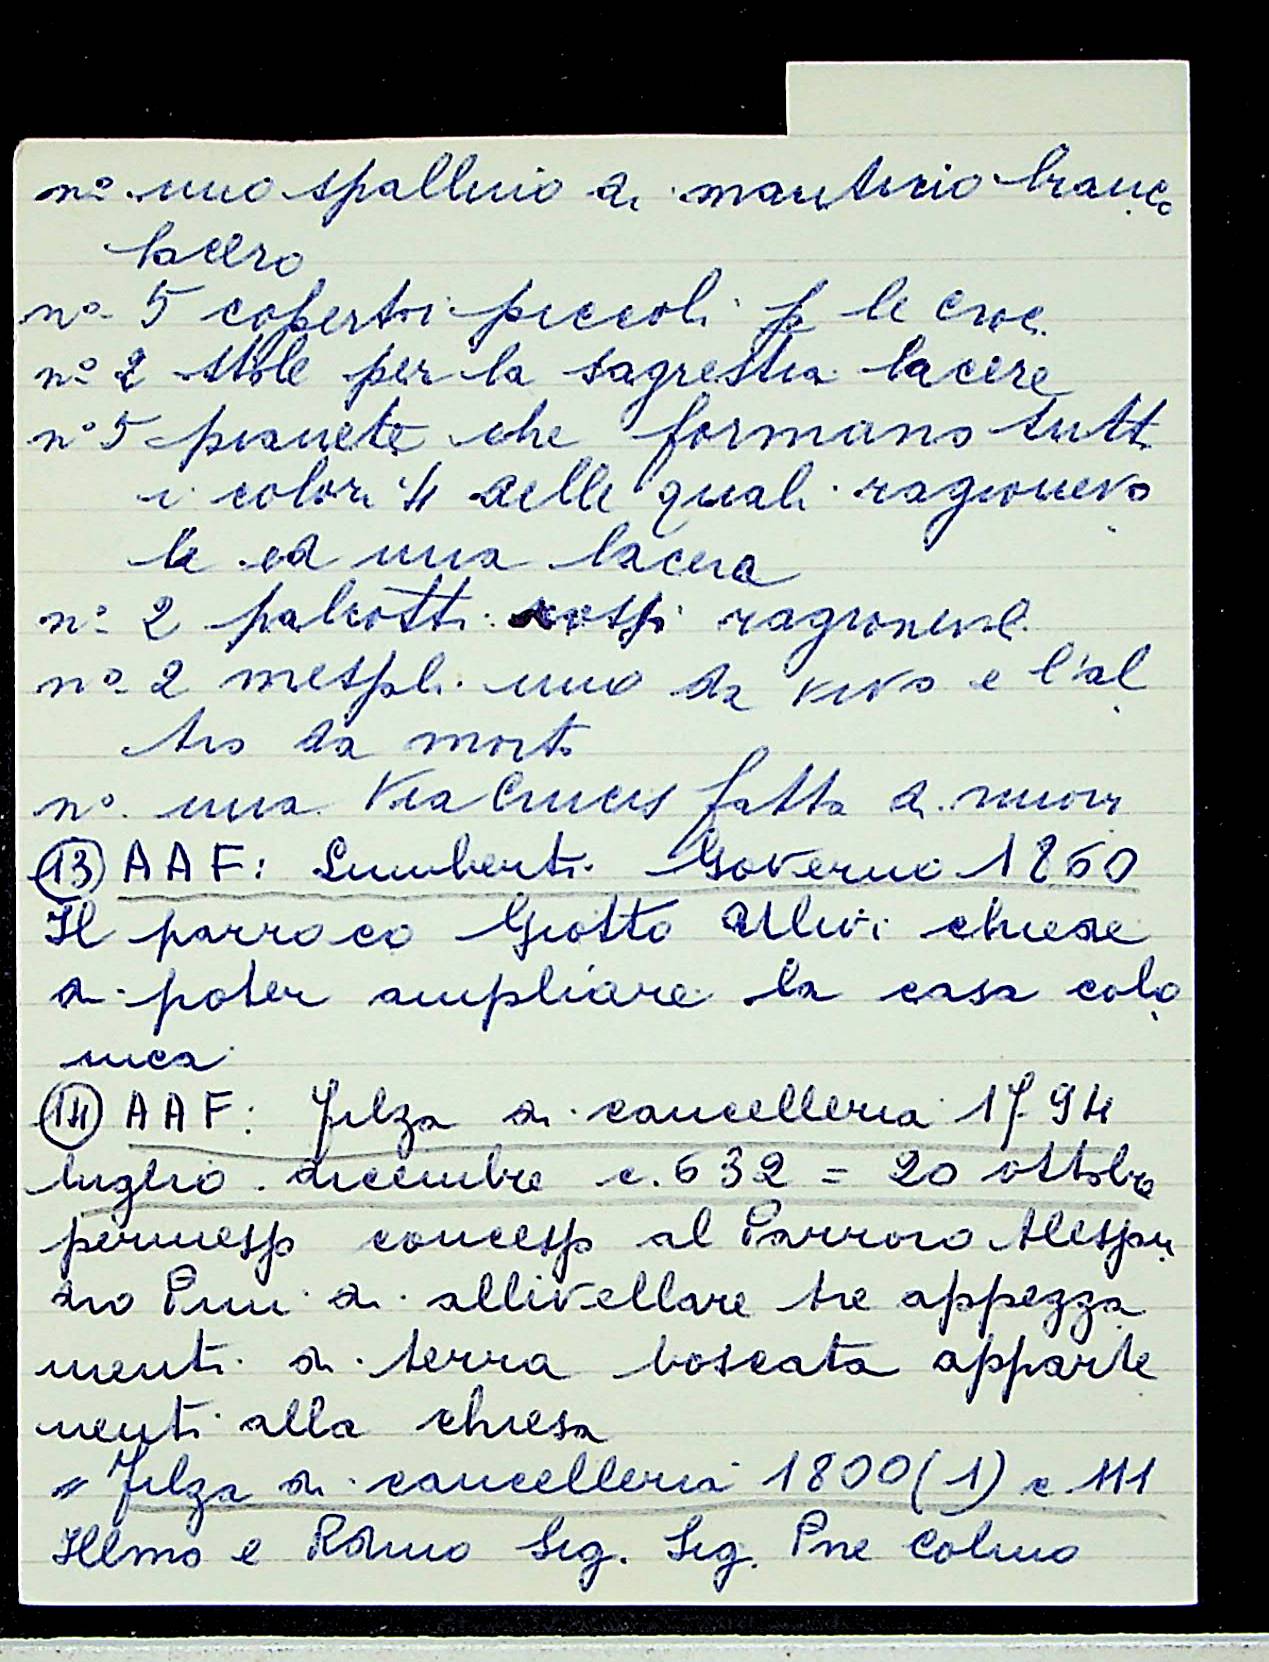 n° uno spallino di mantino bianco
lacero
n° 5 coperti piccoli p le croci
n° 2 stole per la sagrestia lacere
n° 5 pianete che formano tutti
i colori 4 delle quali ragionevo
le ed una lacera
n° 2 paliotti rossi ragionevol
n° 2 messali uno da vivo e l'al
tro da morto
n° una Via Crucis fatta di nuovo
(13) AAF: Limberti Governo 1860
Il parroco Giotto Ulivi chiede
di poter ampliare la casa colo
nica
(14) AAF: Filza di cancelleria 1794
luglio dicembre c. 632 = 20 ottobre
permesso concesso al Parroco Alessan
dro Pini di allivellare tre appezza
menti di terra boscata apparte
nenti alla chiesa
" Filza di cancelleria 1800 (1) c 111
Illmo e Rdmo Sig. Sig. Pne Colmo